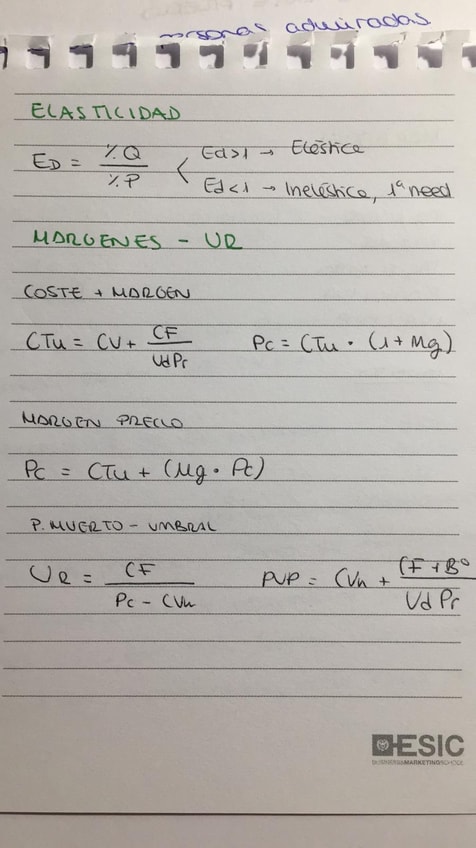 personas admiradas
ELASTICIDAD
ED = %Q / %P < Ed>1 → Elástica
Ed<1 → Inelástica, 1ª need
MARGENES - UR
COSTE + MARGEN
CTu = CV + CF / Ud Pr Pc = CTu · (1 + Mg)
MARGEN PRECIO
Pc = CTu + (Mg · Pc)
P. MUERTO - UMBRAL
UR = CF / Pc - CVu PVP = CVu + CF + Bº / Ud Pr
ESIC
BUSINESS&MARKETINGSCHOOL